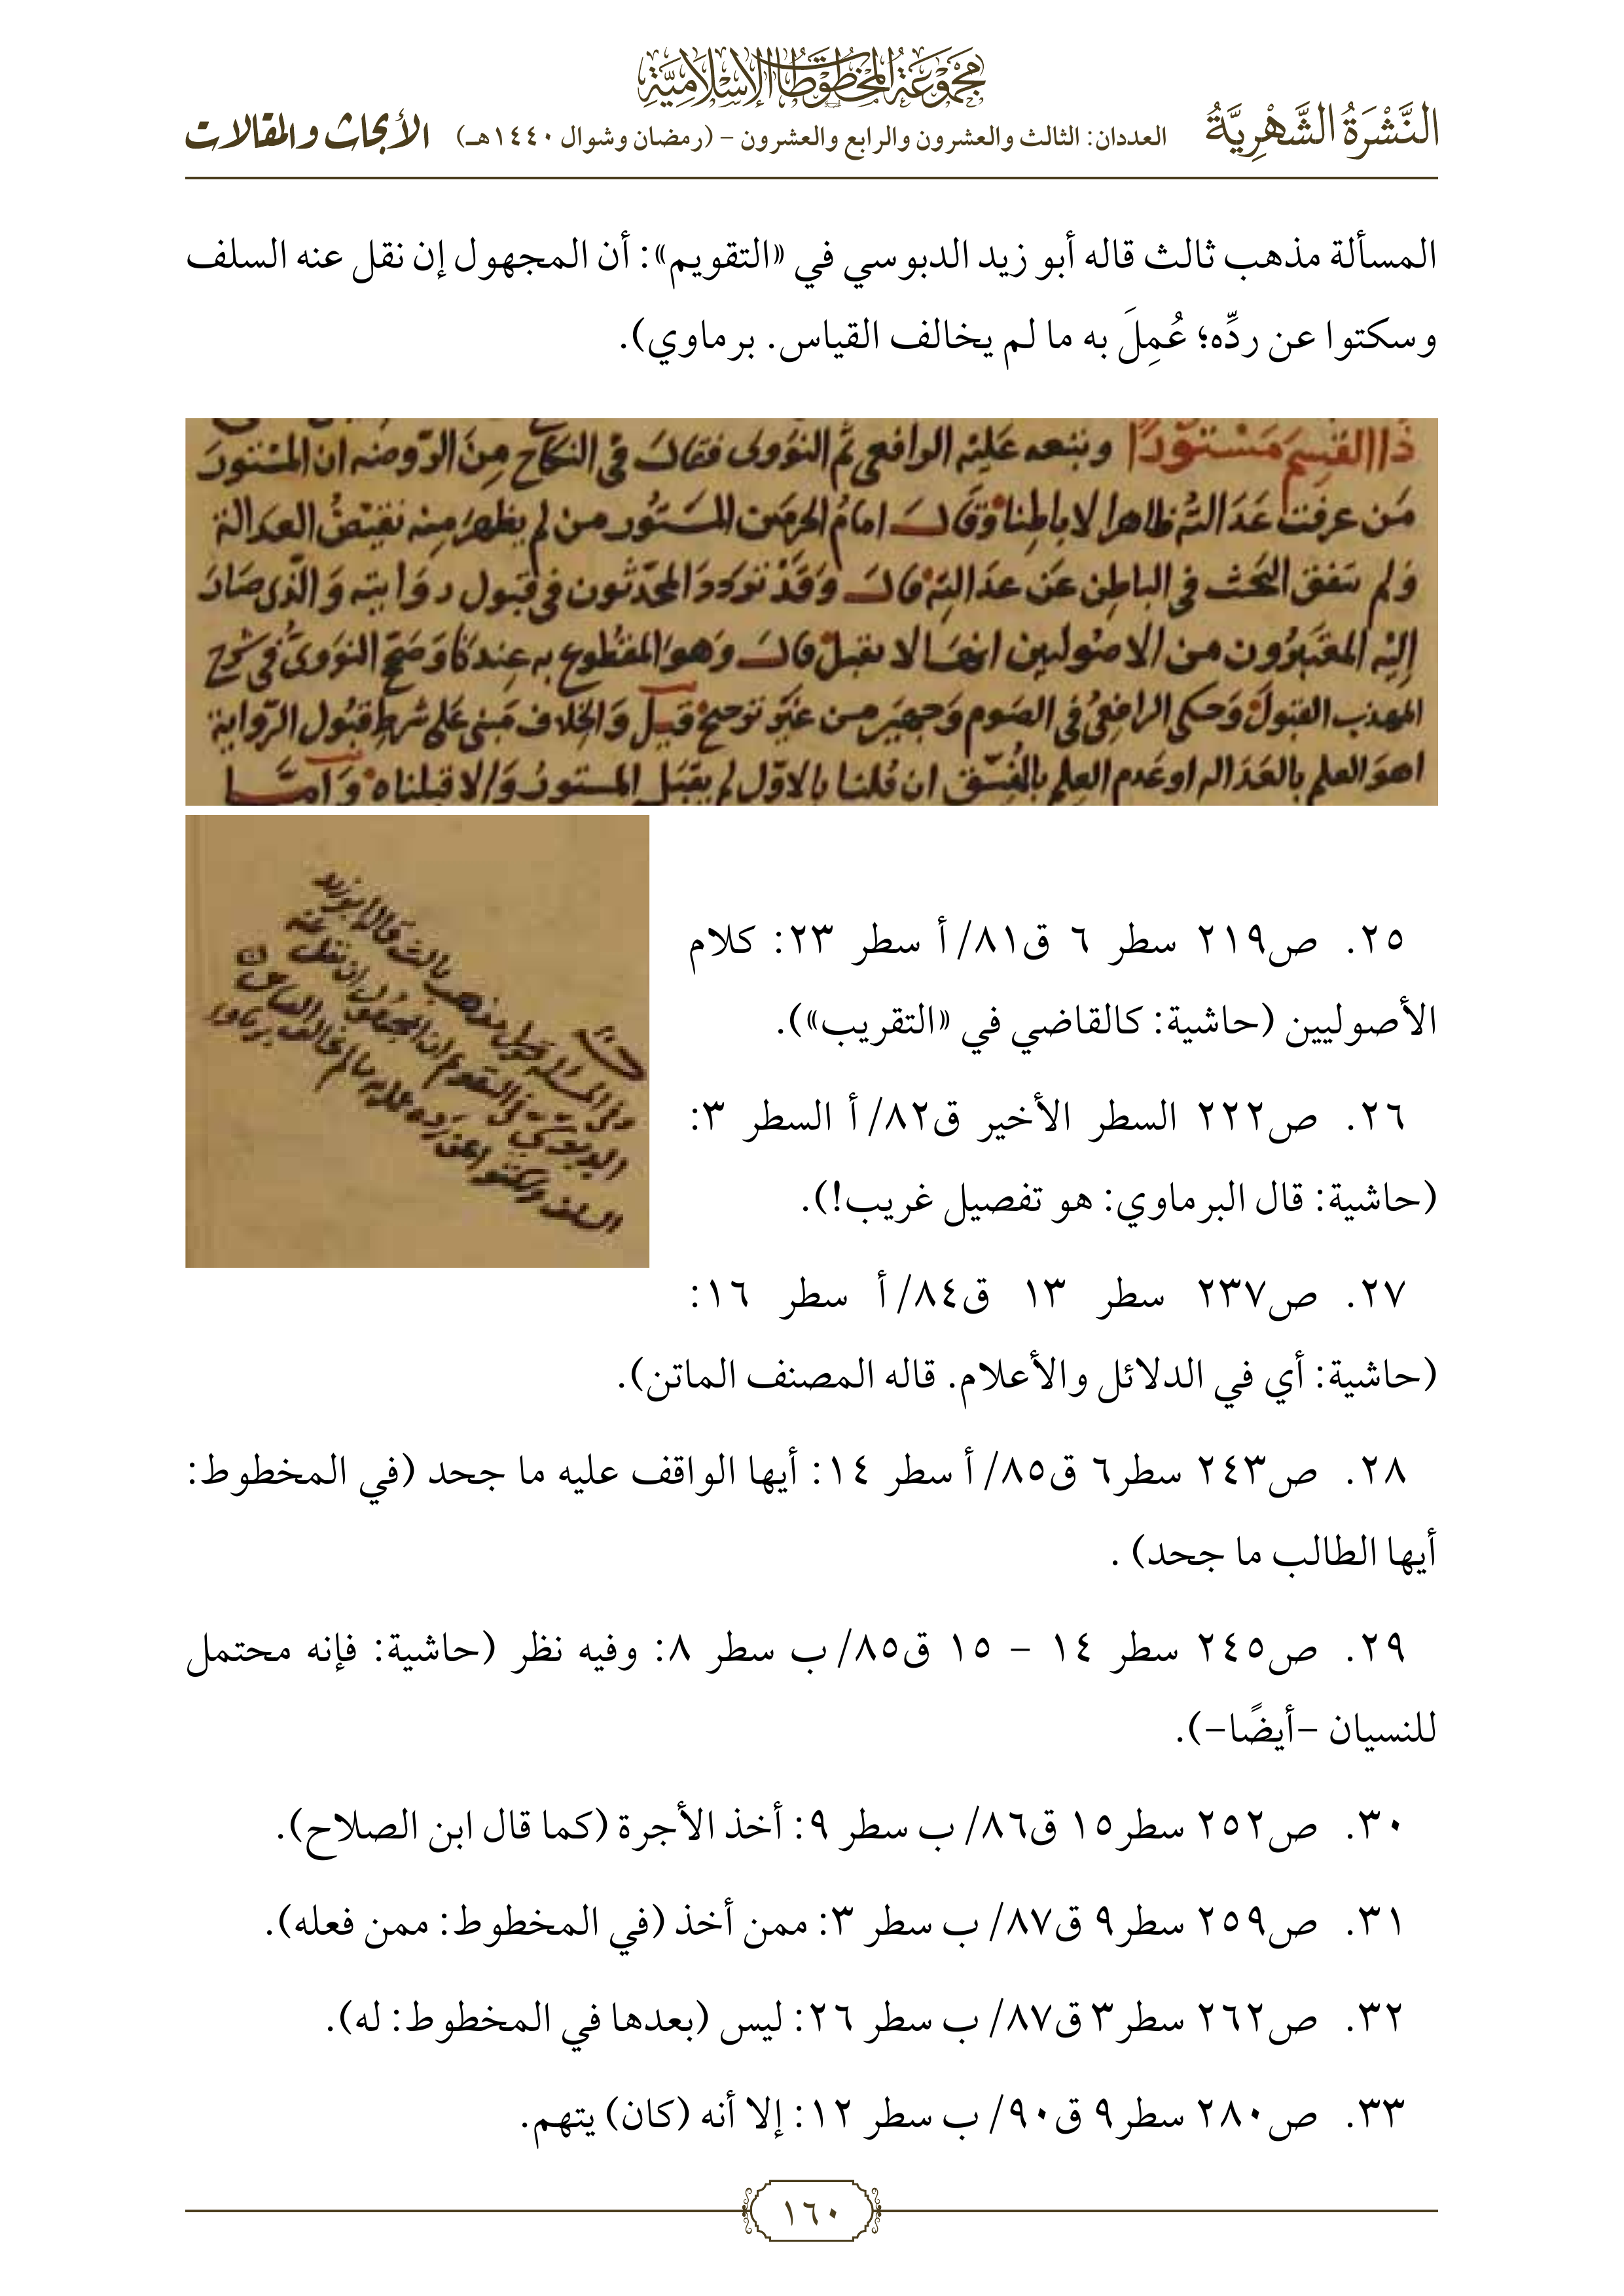 مجموعة المخطوطات الإسلامية
النَّشْرَةُ الشَّهْرِيَّةُ العددان: الثالث والعشرون والرابع والعشرون – (رمضان وشوال ١٤٤٠هـ) الأبحاث والمقالات
المسألة مذهب ثالث قاله أبو زيد الدبوسي في «التقويم»: أن المجهول إن نقل عنه السلف
وسكتوا عن ردِّه؛ عُمِلَ به ما لم يخالف القياس. برماوي).
ذا القسم مستورا وتبعه عليه الرافعي ثم النووي فقال في النكاح من الروضه ان المستور
من عرفت عدالته ظاهرا لا باطنا وقال امام الحرمين المستور من لم يظهر منه نقيض العدالة
ولم يتفق البحث في الباطن عن عدالته قال وقد تردد المحدثون في قبول روايته والذي صار
إليه المعتبرون من الاصوليين انها لا تقبل قال وهو المقطوع به عندنا وصحح النووي في شرح
المهذب القبول وحكى الرافعي في الصوم وجهين من غير ترجيح قيل والخلاف مبني على شرط قبول الرواية
اهو العلم بالعداله او عدم العلم بالفسق ان قلنا بالاول لم يقبل المستور والا قبلناه وأما
حاشية
وفي المسئلة قول مذهب ثالث قاله ابو زيد
الدبوسي في التقويم ان المجهول ان نقل عنه
السلف وسكتوا عن رده عمل به ما لم يخالف القياس
برماوي
٢٥. ص٢١٩ سطر ٦ ق٨١/ أ سطر ٢٣: كلام
الأصوليين (حاشية: كالقاضي في «التقريب»).
٢٦. ص٢٢٢ السطر الأخير ق٨٢/ أ السطر ٣:
(حاشية: قال البرماوي: هو تفصيل غريب!).
٢٧. ص٢٣٧ سطر ١٣ ق٨٤/ أ سطر ١٦:
(حاشية: أي في الدلائل والأعلام. قاله المصنف الماتن).
٢٨. ص٢٤٣ سطر٦ ق٨٥/ أ سطر ١٤: أيها الواقف عليه ما جحد (في المخطوط:
أيها الطالب ما جحد) .
٢٩. ص٢٤٥ سطر ١٤ – ١٥ ق٨٥/ ب سطر ٨: وفيه نظر (حاشية: فإنه محتمل
للنسيان –أيضًا–).
٣٠. ص٢٥٢ سطر١٥ ق٨٦/ ب سطر ٩: أخذ الأجرة (كما قال ابن الصلاح).
٣١. ص٢٥٩ سطر٩ ق٨٧/ ب سطر ٣: ممن أخذ (في المخطوط: ممن فعله).
٣٢. ص٢٦٢ سطر٣ ق٨٧/ ب سطر ٢٦: ليس (بعدها في المخطوط: له).
٣٣. ص٢٨٠ سطر٩ ق٩٠/ ب سطر ١٢: إلا أنه (كان) يتهم.
١٦٠